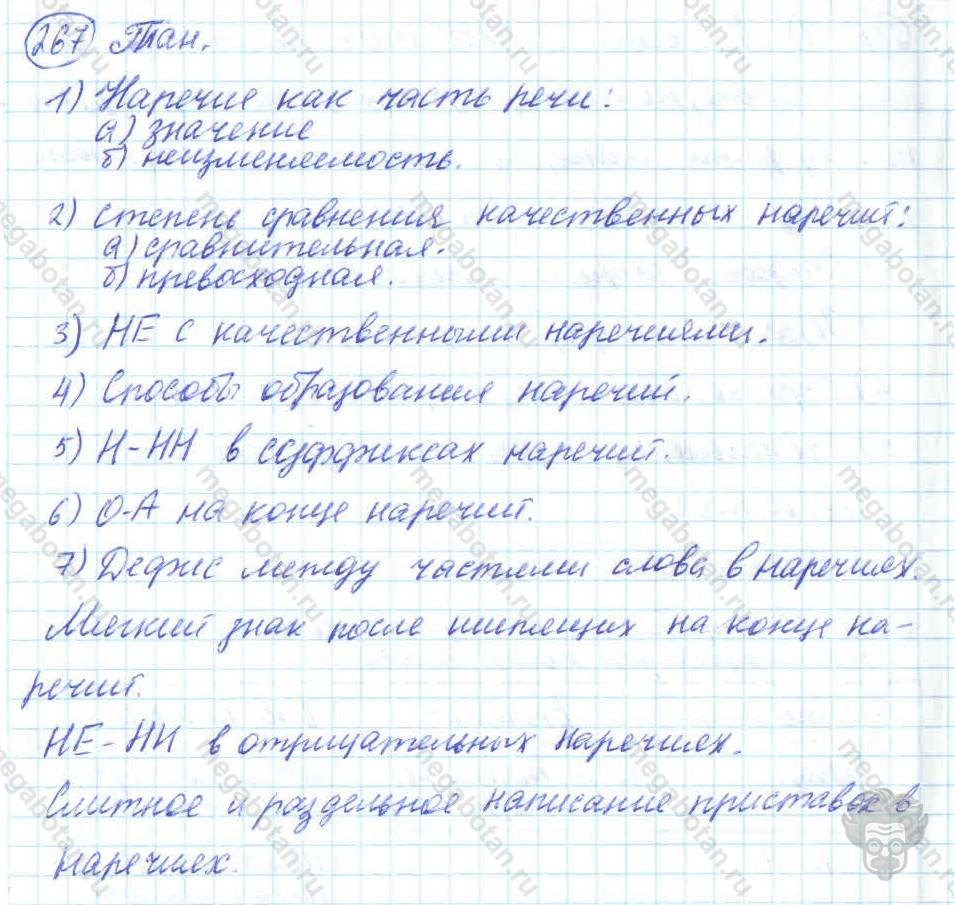 267 План.
1) Наречие как часть речи:
а) значение
б) неизменяемость.
2) степень сравнения качественных наречий:
а) сравнительная.
б) превосходная.
3) НЕ с качественными наречиями.
4) Способы образования наречий.
5) Н-НН в суффиксах наречий.
6) О-А на конце наречий.
7) Дефис между частями слова в наречиях.
Мягкий знак после шипящих на конце на-
речий.
НЕ-НИ в отрицательных наречиях.
Слитное и раздельное написание приставок в
наречиях.
megabotan.ru